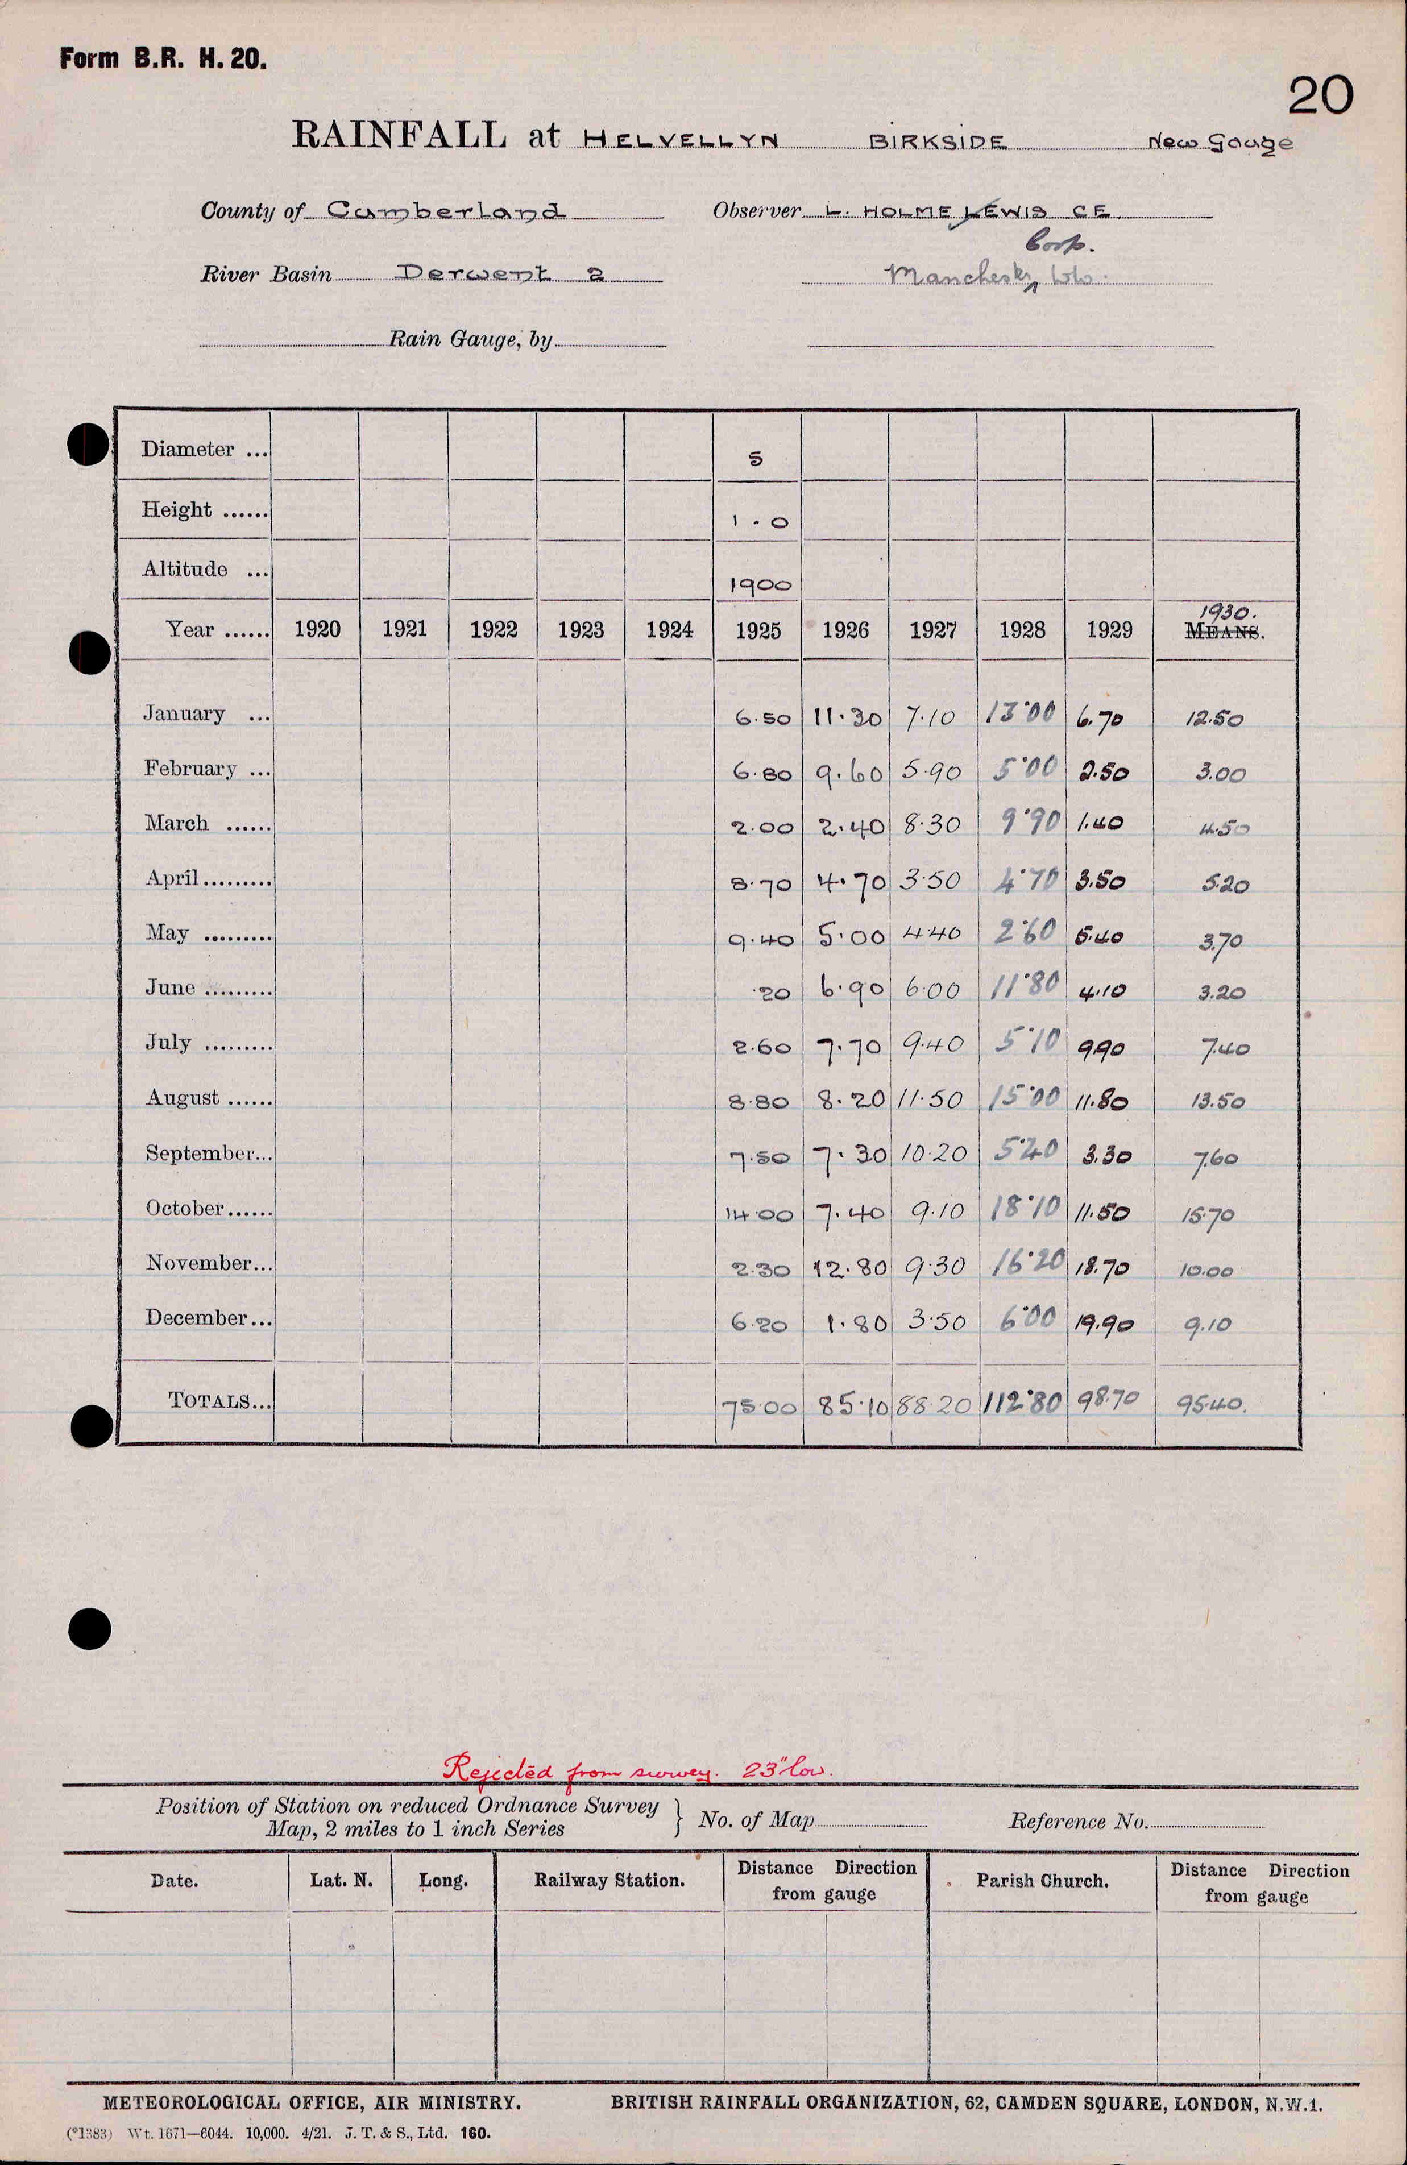 Form B.R. H. 20.
20
RAINFALL at HELVELLYN BIRKSIDE New Gauge
County of Cumberland Observer L. HOLME LEWIS C.E.
Corp.
River Basin Derwent 2 Manchester Wks.
Rain Gauge, by
Diameter ... 5
Height ...... 1 . 0
Altitude ... 1900
1930.
Year ...... 1920 1921 1922 1923 1924 1925 1926 1927 1928 1929 MEANS.
January ... 6.50 11.30 7.10 13.00 6.70 12.50
February ... 6.80 9.60 5.90 5.00 2.50 3.00
March ...... 2.00 2.40 8.30 9.90 1.40 4.50
April ......... 8.70 4.70 3.50 4.70 3.50 5.20
May ......... 9.40 5.00 4.40 2.60 5.40 3.70
June ......... .20 6.90 6.00 11.80 4.10 3.20
July ......... 2.60 7.70 9.40 5.10 9.90 7.40
August ...... 8.80 8.20 11.50 15.00 11.80 13.50
September... 7.50 7.30 10.20 5.40 3.30 7.60
October...... 14.00 7.40 9.10 18.10 11.50 15.70
November... 2.30 12.80 9.30 16.20 18.70 10.00
December... 6.20 1.80 3.50 6.00 19.90 9.10
TOTALS... 75.00 85.10 88.20 112.80 98.70 95.40.
Rejected from survey. 23" low.
Position of Station on reduced Ordnance Survey
Map, 2 miles to 1 inch Series } No. of Map Reference No.
Date. Lat. N. Long. Railway Station. Distance Direction from gauge Parish Church. Distance Direction from gauge
METEOROLOGICAL OFFICE, AIR MINISTRY. BRITISH RAINFALL ORGANIZATION, 62, CAMDEN SQUARE, LONDON, N.W.1.
(*1383) Wt. 1671—6044. 10,000. 4/21. J. T. & S., Ltd. 160.